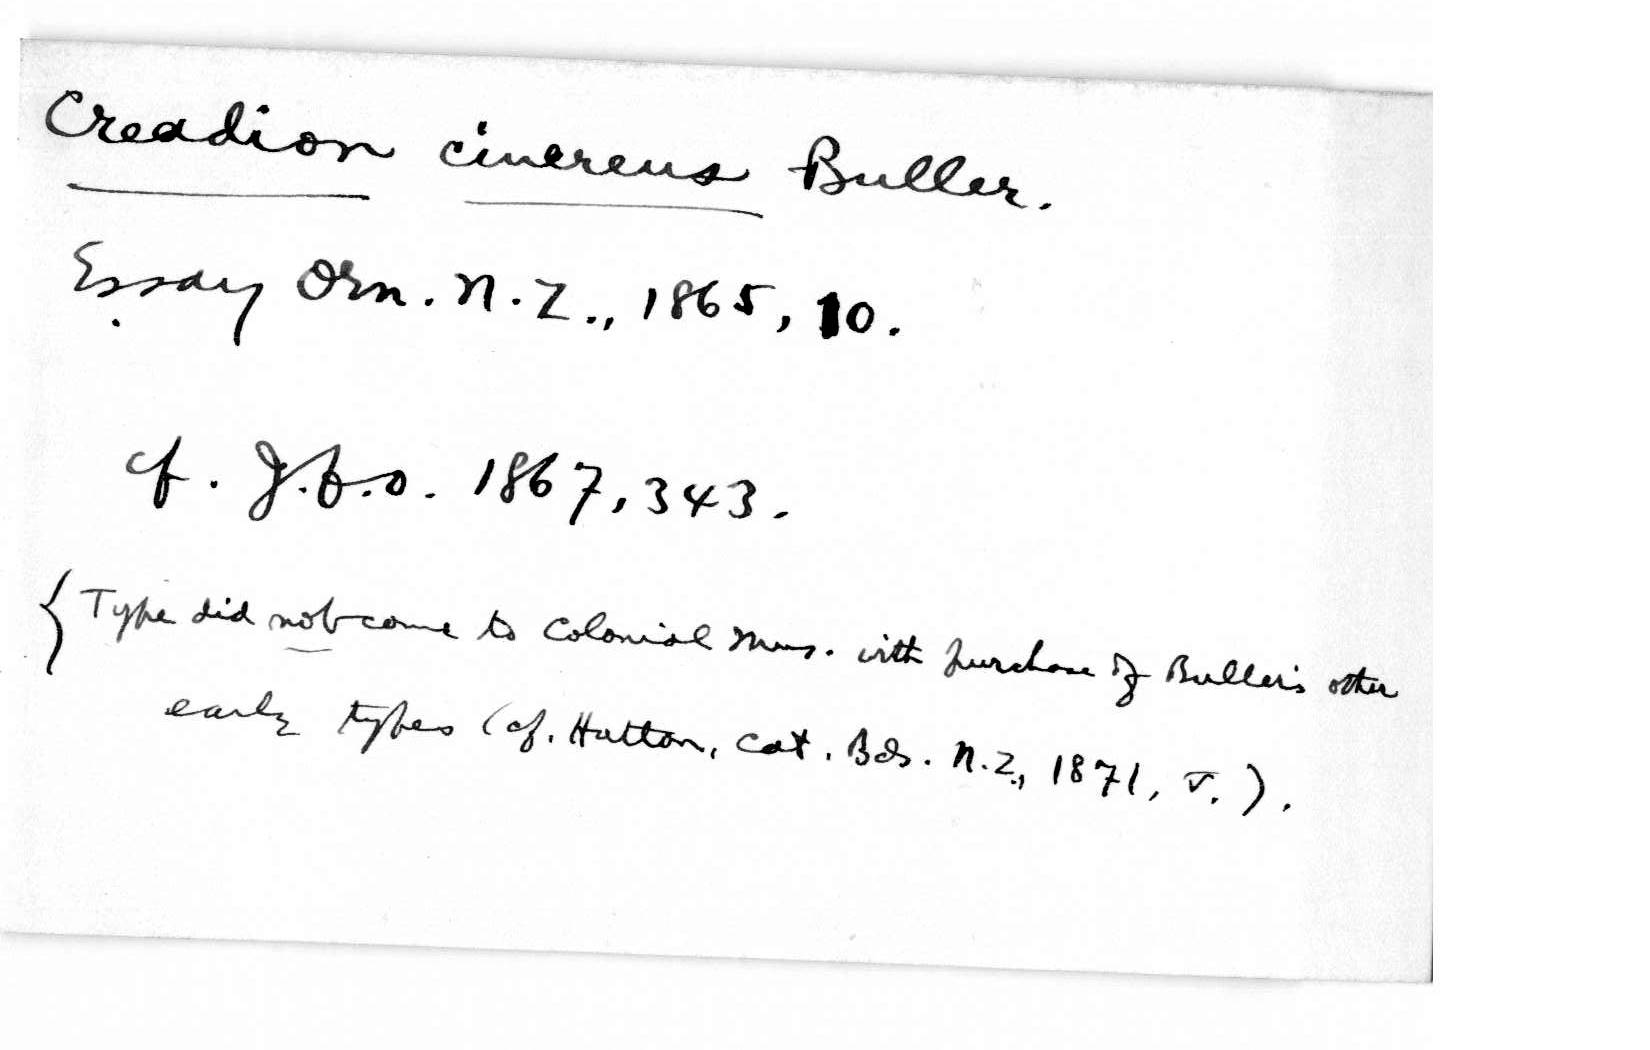 Creadion cinereus Buller.
Essay Orn. N.Z., 1865, 10.
cf. J.f.O. 1867, 343.
{ Type did not come to Colonial Mus. with purchase of Buller's other
early types (cf. Hutton, Cat. Bds. N.Z., 1871, V.).